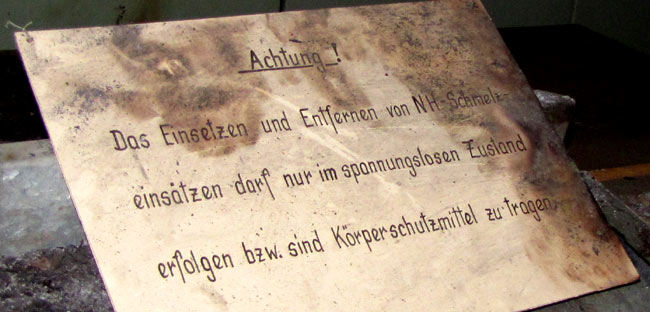 Achtung !
Das Einsetzen und Entfernen von NH-Schmelz-
einsätzen darf nur im spannungslosen Zustand
erfolgen bzw. sind Körperschutzmittel zu tragen.